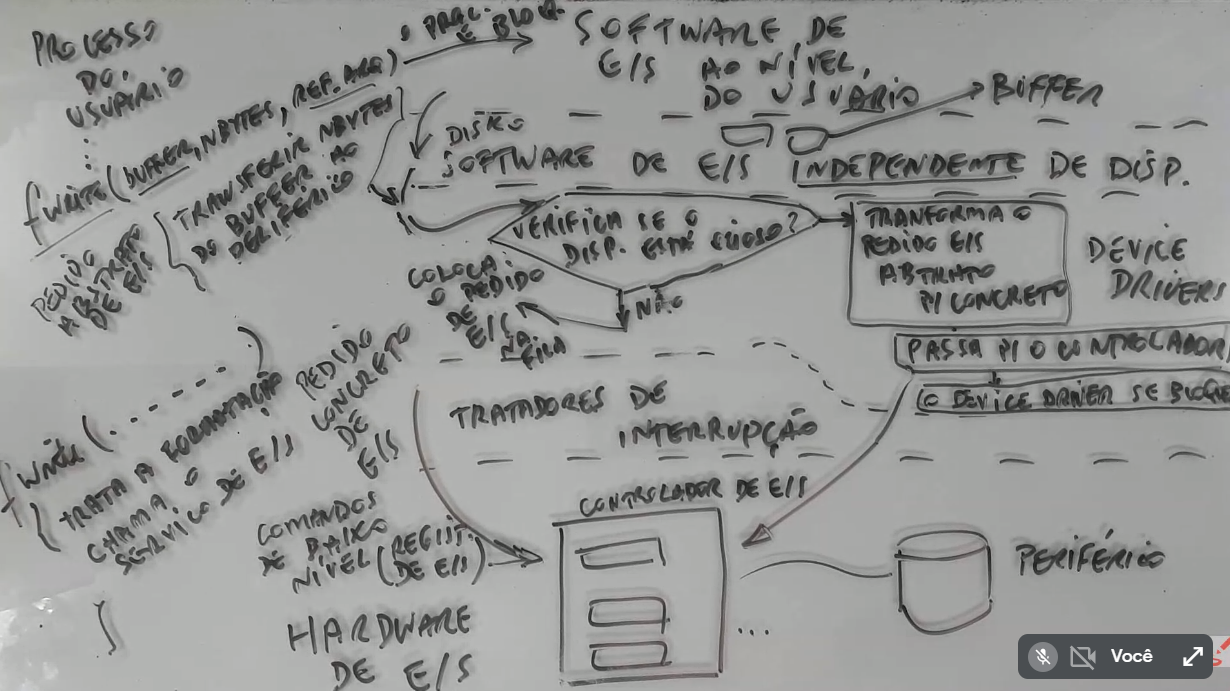 PROCESSO
DO
USUÁRIO
fwrite(BUFFER, NBYTES, REF. ARQ)
PEDIDO
ABSTRATO
DE E/S
{ TRANSFERIR NBYTES
DO BUFFER AO
PERIFÉRICO
E BLOCA.
SOFTWARE DE
E/S AO NÍVEL
DO USUÁRIO
BUFFER
DISKO
SOFTWARE DE E/S INDEPENDENTE DE DISP.
VERIFICA SE O
DISP. ESTÁ OCIOSO?
NÃO
COLOCA
O PEDIDO
DE
E/S
NA
FILA
TRANFORMA O
PEDIDO E/S
ABTRATO
P/ CONCRETO
DEVICE
DRIVERS
PASSA P/ O CONTROLADOR
O DEVICE DRIVER SE BLOQUE
fwrite(.......)
{ TRATA A FORMATAÇÃO
CHAMA O
SERVIÇO DE E/S
}
PEDIDO
CONCRETO
DE
E/S
TRATADORES DE
INTERRUPÇÃO
CONTROLADOR DE E/S
COMANDOS
DE BAIXO
NÍVEL (REGIST.
DE E/S)
...
PERIFÉRICO
HARDWARE
DE E/S
Você